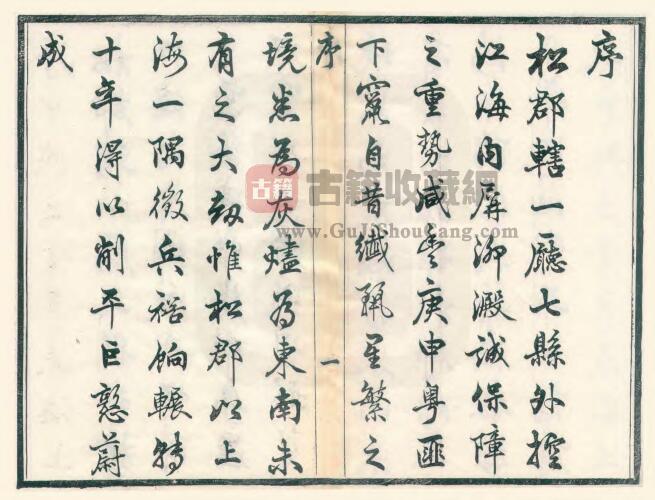 序
松郡轄一廳七縣外控
江海内屏泖澱誠保障
之重勢咸豐庚申粤匪
下竄自昔纖
星繁之
序
一
境悉為灰燼為東南未
有之大劫惟松郡以上
海一隅徵兵裕餉輾轉
十年得以削平巨憝蔚
成
古籍
古籍收藏網
www.GuJiShouCang.com